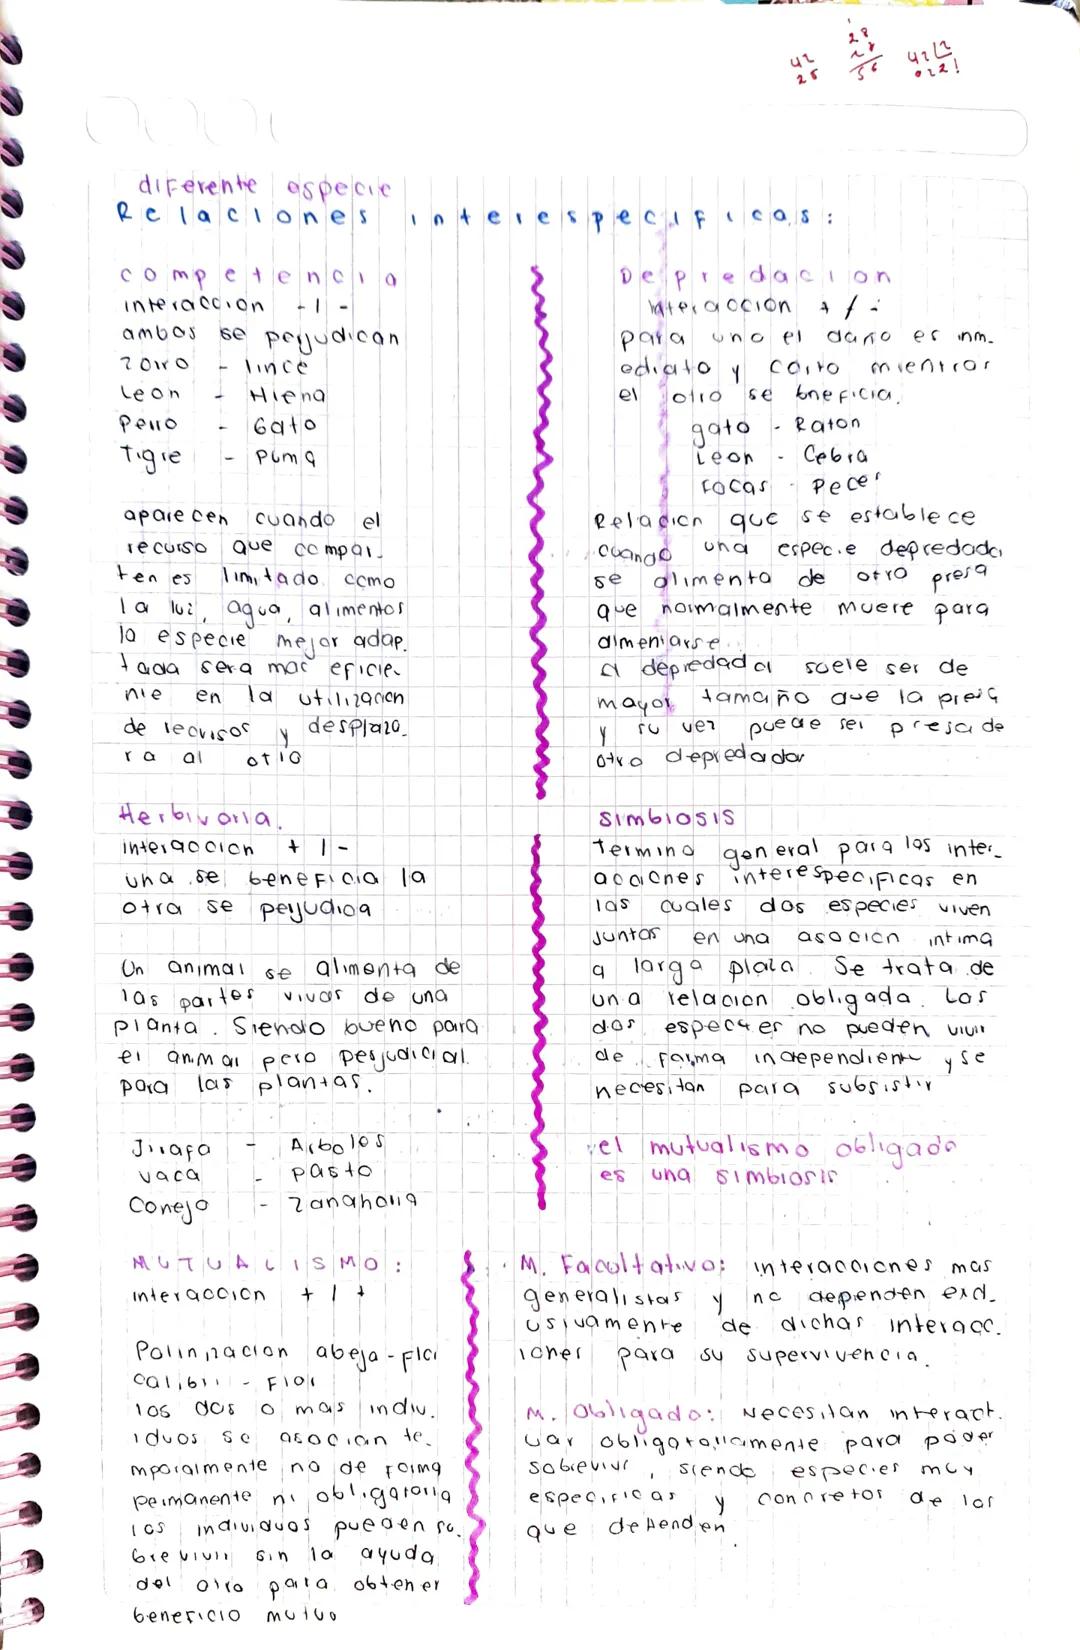 28
42 28 42 2
28 56 0221
diferente especie
Relaciones interespecificas:
competencia
interaccion -/-
ambos se perjudican
zorro - lince
Leon - Hiena
Perro - Gato
Tigre - Puma
aparecen cuando el
recurso que compar-
ten es limitado como
la luz, agua, alimentos
la especie mejor adap.
tada sera mas eficie-
nte en la utilizacion
de recursos y desplaza-
ra al otro
Depredacion
interaccion +/-
para uno el daño es inm-
ediato y corto mientras
el otro se bneficia.
gato - Raton
Leon - Cebra
Focas - Peces
Relacion que se establece
cuando una especie depredador
se alimenta de otro presa
que normalmente muere para
alimentarse.
el depredador suele ser de
mayor tamaño que la presa
y su vez puede ser presa de
otro depredador
Herbivoria.
interaccion +/-
una se beneficia la
otra se perjudica
Un animal se alimenta de
las partes vivas de una
planta. Siendo bueno para
el animal pero perjudicial
para las plantas.
Jirafa - Arboles
vaca - pasto
Conejo - zanahoria
simbiosis
Termino general para las inter-
acciones interespecificas en
las cuales dos especies viven
juntas en una asocion intima
a largo plazo. Se trata de
una relacion obligada. Las
dos especies no pueden vivir
de forma independiente y se
necesitan para subsistir
el mutualismo obligado
es una simbiosis
MUTUALISMO:
interaccion +/+
Polinizacion abeja-flor
Calibri - Flor
los dos o mas indiv.
iduos se asocian te-
mporalmente no de forma
permanente ni obligatoria
los individuos pueden so.
brevivir sin la ayuda
del otro para obtener
beneficio mutuo
M. Facultativo: interacciones mas
generalistas y no dependen excl-
usivamente de dichas interacc.
iones para su supervivencia.
M. Obligado: Necesitan interact.
uar obligatoriamente para poder
sobrevivir, siendo especies muy
especificas y concretos de los
que dependen